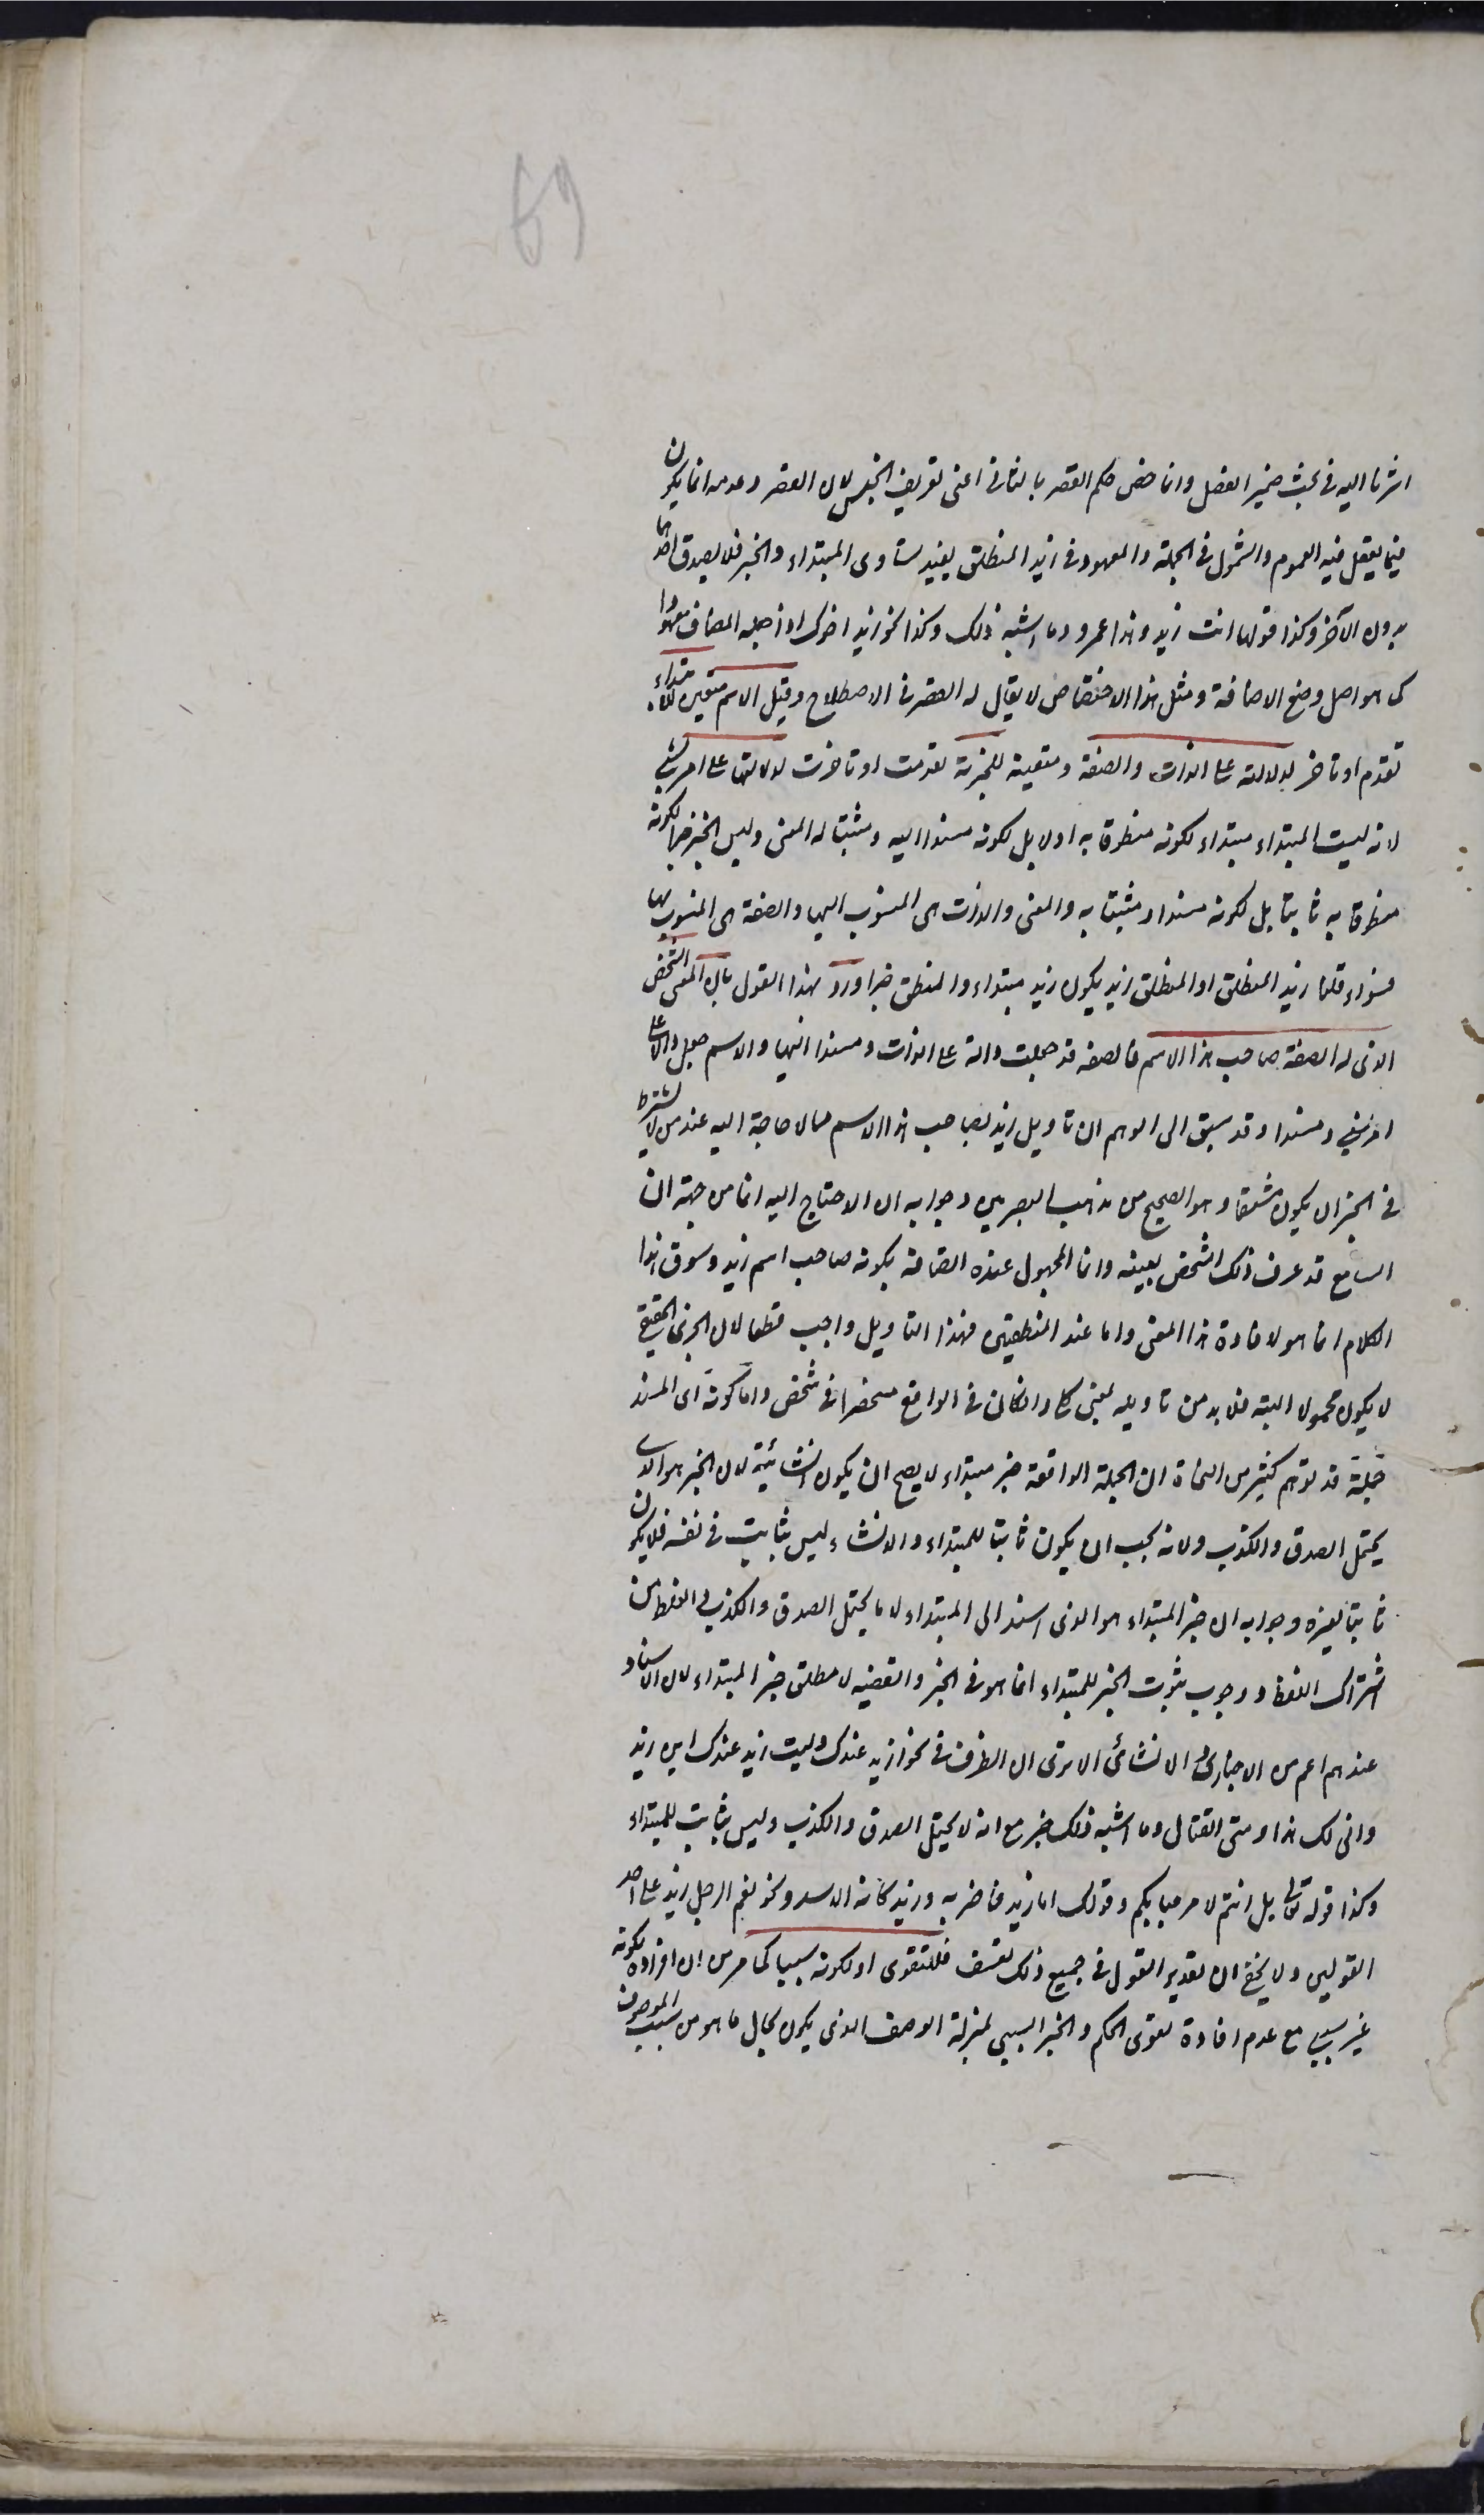 69
اشرنا اليه فى بحث ضمير الفصل وانما خص حكم القصر بالثانى اعنى تعريف الجنس لان القصر وعدمه انما يكون
فيما يعقل فيه العموم والشمول فى الجملة والمعهود فى زيد المنطلق يفيد تساوى المبتداء والخبر فلا يصدق احدهما
بدون الآخر وكذا قولها انت زيد وهذا عمرو وما اشبه ذلك وكذا نحو زيد اخوك اذا جعله المضاف معهودا
كما هو اصل وضع الاضافة ومثل هذا الاختصاص لا يقال له القصر فى الاصطلاح وقيل الاسم متعين للابتداء
تقدم او تاخر لدلالته على الذات والصفة متعينة للخبرية تقدمت او تاخرت لدلالتها على امر نسبى
لانه ليست المبتداء مبتداء لكونه منطوقا به اولا بل لكونه مسندا اليه ومثبتا له المعنى وليس الخبر خبرا لكونه
منطوقا به ثانيا بل لكونه مسندا ومثبتا به والمعنى والذات هى المنسوب اليها والصفة هى المنسوب بها
فسواء قلنا زيد المنطلق او المنطلق زيد يكون زيد مبتداء والمنطلق خبرا ورد هذا القول بان المعنى الشخص
الذى له الصفة صاحب هذا الاسم فالصفة قد جعلت دالة على الذات ومسندا اليها والاسم جعل دالا على
امر نسبى ومسندا وقد سبق الى الوهم ان تاويل زيد بصاحب هذا الاسم مما لا حاجة اليه عند من لا يشترط
فى الخبر ان يكون مشتقا وهو الصحيح من مذهب البصريين وجوابه ان الاحتياج اليه انما من جهة ان
السامع قد عرف ذلك الشخص بعينه وانما المجهول عنده اتصافه بكونه صاحب اسم زيد وسوق هذا
الكلام انما هو لافادة هذا المعنى واما عند المنطقيين فهذا التاويل واجب قطعا لان الجزئى الحقيقى
لا يكون محمولا البته فلا بد من تاويله بمعنى كلى وان كان فى الواقع منحصرا فى شخص واما كونه اى المسند
جملة قد توهم كثير من النحاة ان الجملة الواقعة خبر مبتداء لا يصح ان يكون انشائية لان الخبر هو الذى
يحتمل الصدق والكذب ولانه يجب ان يكون ثابتا للمبتداء والانشاء ليس بثابت فى نفسه فلا يكون
ثابتا لغيره وجوابه ان خبر المبتداء هو الذى اسند الى المبتداء لا ما يحتمل الصدق والكذب والغلط من
اشتراك اللفظ ووجوب ثبوت الخبر للمبتداء انما هو فى الخبر والقضيه لا مطلق خبر المبتداء لان الاسناد
عندهم اعم من الاخبارى والانشائى الا ترى ان الظرف فى نحو ازيد عندك وليت زيد عندك اين زيد
وانى لك هذا ومتى القتال وما اشبه ذلك خبر مع انه لا يحتمل الصدق والكذب وليس بثابت للمبتداء
وكذا قوله تعالى بل انتم لا مرحبا بكم وقولك اما زيد فاضربه وزيد كانه الاسد ونحو نعم الرجل زيد على احد
القولين ولا يخفى ان تقدير القول فى جميع ذلك تعسف فللتقوى او لكونه سببيا كما مر من ان افراده لكونه
غير سببى مع عدم افادة تقوى الحكم والخبر السببى بمنزلة الوصف الذى يكون بحال ما هو من سبب الموصوف